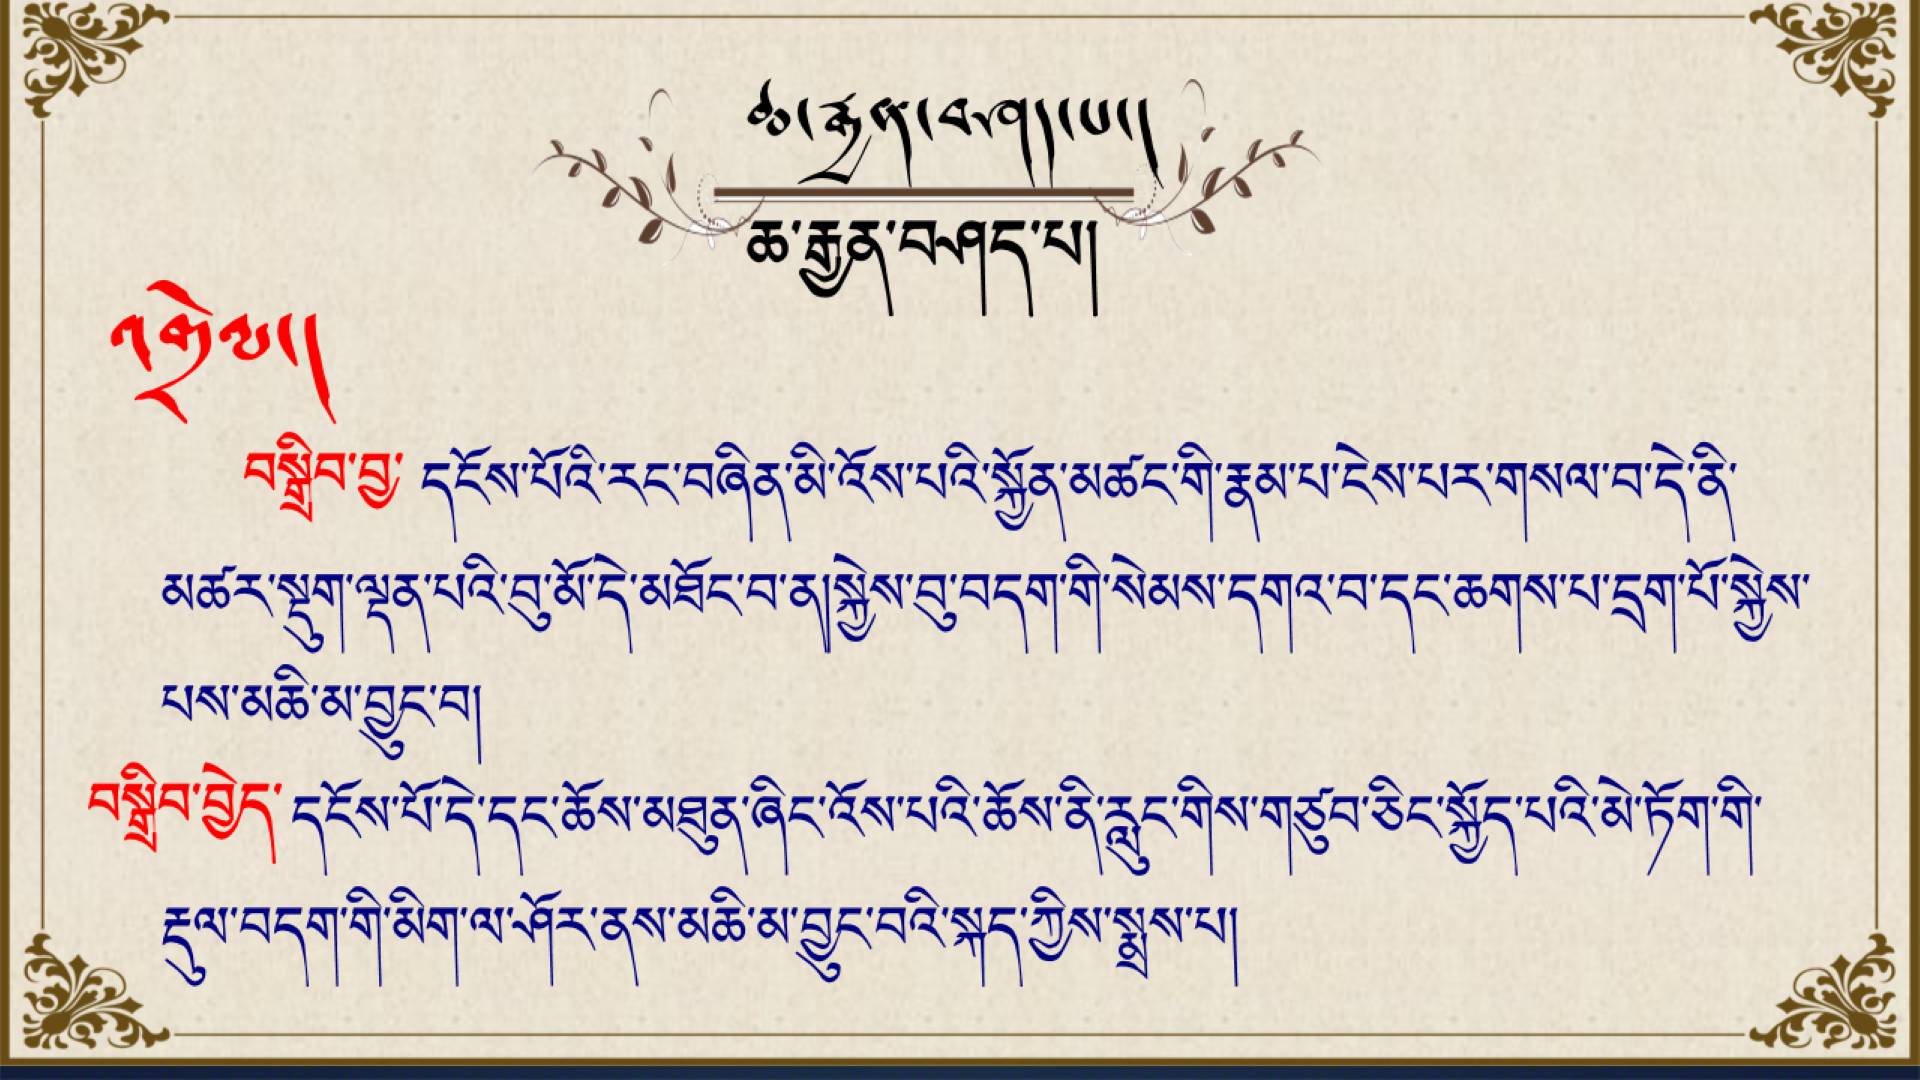 ཆ་རྒྱན་བཤད་པ།
ཆ་རྒྱན་བཤད་པ།
འགྲེལ།
བསྒྲིབ་བྱ་ དངོས་པོའི་རང་བཞིན་མི་འོས་པའི་སྐྱོན་མཚང་གི་རྣམ་པ་ངེས་པར་གསལ་བ་དེ་ནི་
མཚར་སྡུག་ལྡན་པའི་བུ་མོ་དེ་མཐོང་བ་ན།སྐྱེས་བུ་བདག་གི་སེམས་དགའ་བ་དང་ཆགས་པ་དྲག་པོ་སྐྱེས་
པས་མཆི་མ་བྱུང་བ།
བསྒྲིབ་བྱེད་ དངོས་པོ་དེ་དང་ཆོས་མཐུན་ཞིང་འོས་པའི་ཆོས་ནི་རླུང་གིས་གཙུབ་ཅིང་སྐྱོད་པའི་མེ་ཏོག་གི་
རྡུལ་བདག་གི་མིག་ལ་ཤོར་ནས་མཆི་མ་བྱུང་བའི་སྐད་ཀྱིས་སྨྲས་པ།